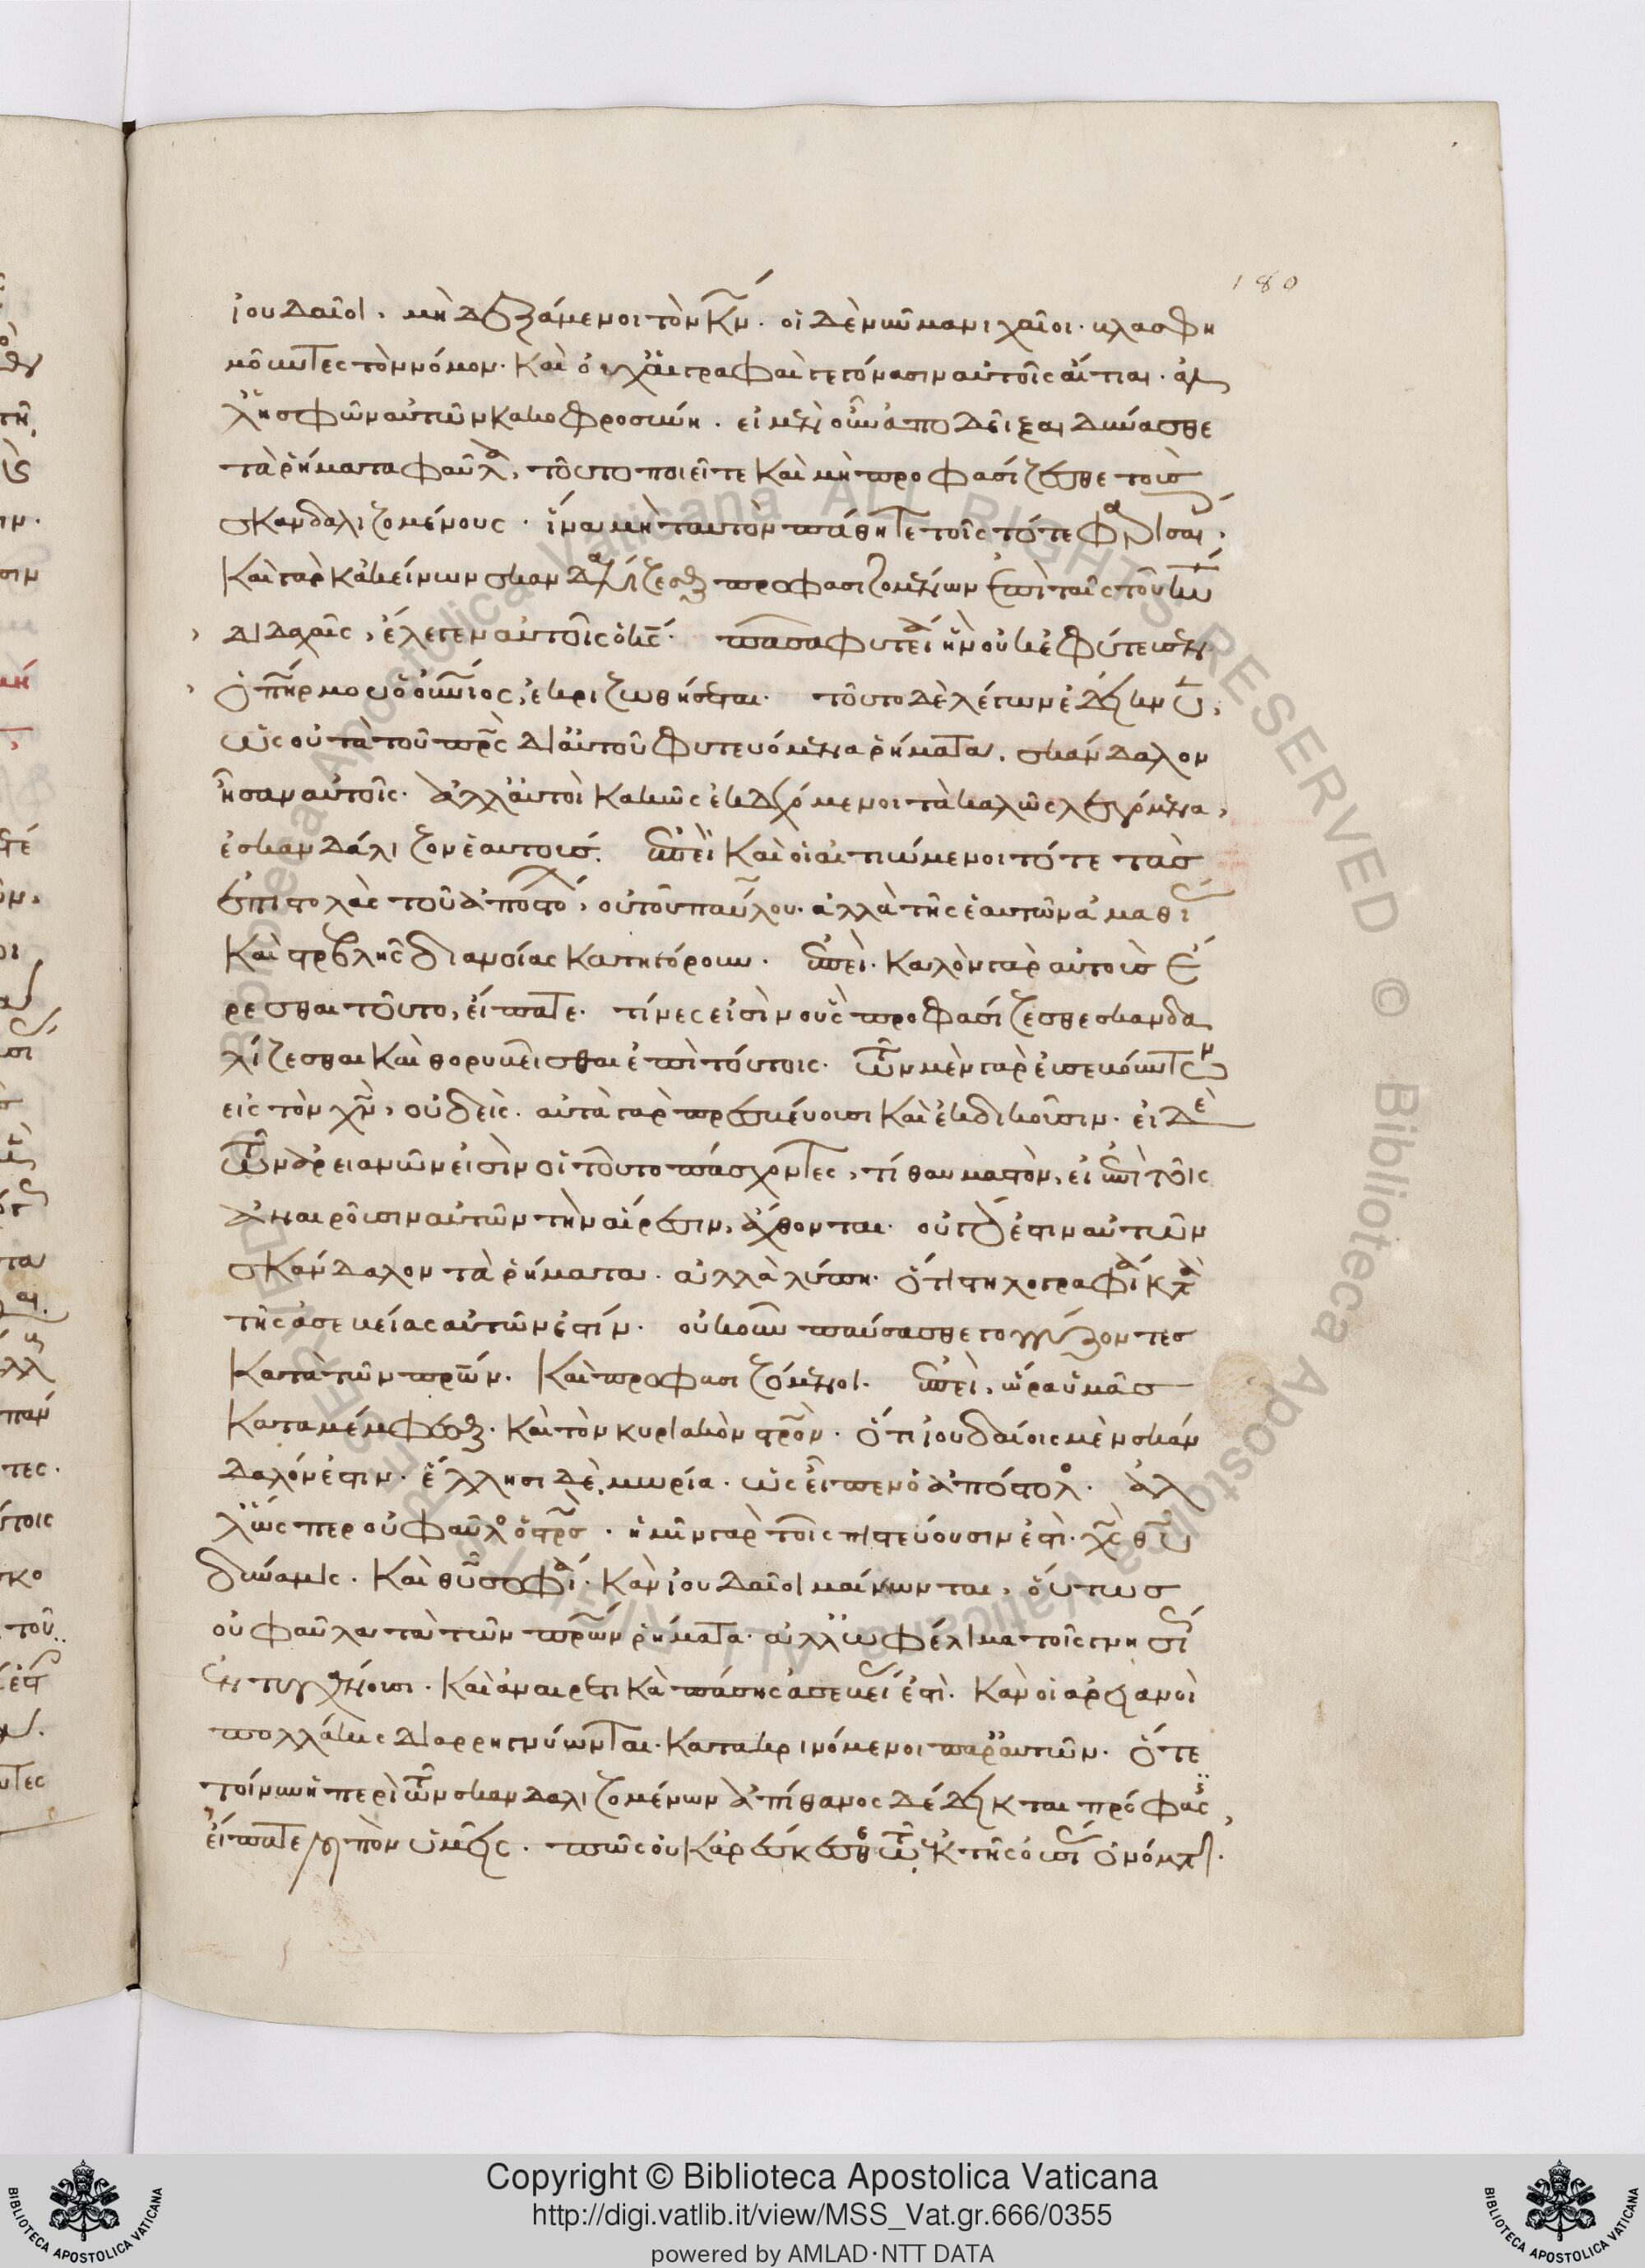 180
ἰουδαῖοι, μὴ δεξάμενοι τὸν κ̅ν̅. οἱ δὲ νῦν μανιχαῖοι. βλασφη
μοῦντες τὸν νόμον. καὶ οὐχ ἁι γραφαὶ γεγόνασιν αὐτοῖς αἴτιαι. ἀλ
λ' ἡ σφῶν αὐτῶν κακοφροσύνη. εἰ μὲν οὖν ἀποδεῖξαι δύνασθε
τὰ ῥήματα φαῦλα, τοῦτο ποιεῖτε καὶ μὴ προφασίζεσθε τοὺς
σκανδαλιζομένους. ἵνα μὴ ταυτὸν πάθητε τοῖς τότε φαρισαί.
καὶ γὰρ κἀκείνων σκανδαλίζεσθαι προφασιζομένων ἐπὶ ταῖς τοῦ κυ
διδαχαῖς, ἔλεγεν αὐτοῖς ὁ κ̅ς̅. πᾶσα φυτεία ἣν οὐκ ἐφύτευσεν
ὁ π̅η̅ρ μου ὁ οὐνιος, ἐκριζωθήσεται. τοῦτο δὲ λέγων ἐδείκνυ,
ὡς οὐ τὰ τοῦ πρς δι' αὐτοῦ φυτευόμενα ῥήματα, σκάνδαλον
ἦσαν αὐτοῖς. ἀλλ' αὐτοὶ κακῶς ἐκδεχόμενοι τὰ καλῶς λεγόμενα,
ἐσκανδάλιζον ἑαυτούς. ἐπεὶ καὶ οἱ αἰτιώμενοι τότε τὰς
ἐπιστολὰς τοῦ ἀποστό, οὐ τοῦ παύλου. ἀλλὰ τῆς ἑαυτῶν ἀμαθί
καὶ στρεβλῆς διανοίας κατηγόρουν. ἐπεί. καλὸν γὰρ αὐτοὺς ἐ
ρεσθαι τοῦτο, εἴπατε. τίνες εἰσὶν οὓς προφασίζεσθε σκανδα
λίζεσθαι καὶ θορυβεῖσθαι ἐπὶ τούτοις. τῶν μὲν γὰρ εὐσεβούντων
εἰς τὸν χν, οὐδείς. αὐτὰ γὰρ πρεσβεύουσι καὶ ἐκδικοῦσιν. εἰ δὲ
τῶν ἀρειανῶν εἰσὶν οἱ τοῦτο πάσχοντες, τί θαυμαστὸν, εἰ ἐπὶ τοῖς
ἀναιροῦσιν αὐτῶν τὴν αἵρεσιν, ἄχθονται. οὐ γάρ ἐστιν αὐτῶν
σκάνδαλον τὰ ῥήματα. ἀλλὰ λύπη. ὅτι στηλογραφία κατὰ
τῆς ἀσεβείας αὐτῶν ἐστίν. οὐκοῦν παύσασθε γογγύζοντες
κατὰ τῶν πρων. καὶ προφασιζόμενοι. ἐπεὶ, ὥρα ὑμᾶς
καταμέμφεσθαι. καὶ τὸν κυριακὸν στρον. ὅτι ἰουδαίοις μὲν σκάν
δαλόν ἐστιν. ἕλλησι δὲ μωρία. ὡς εἶπεν ὁ ἀπόστολο. ἀλ
λ' ὥσπερ οὐ φαῦλος ὁ στρς. ἡμῖν γὰρ τοῖς πιστεύουσιν ἐστὶ. χς θυ
δύναμις. καὶ θυ σοφία. κἂν ἰουδαῖοι μαίνωνται, οὕτως
οὐ φαῦλα τὰ τῶν πρων ῥήματα. ἀλλ' ὠφέλιμα τοῖς γνησί
ἐντυγχάνουσι. καὶ ἀναιρετικὰ πάσης ἀσεβεί ἐστὶ. κἂν οἱ ἀρειανοὶ
πολλάκις διαρρηγνύωνται. κατακρινόμενοι παρ' αὐτῶν. ὅτε
τοίνυν ἡ περὶ τῶν σκανδαλιζομένων ἀπίθανος δέδεικται πρόφασις,
εἴπατε λοιπὸν ὑμεῖς. πῶς οὐκ ἀρέσκεσθε τῷ ἐκ τῆς οὐσί ὀνόματι.
Copyright © Biblioteca Apostolica Vaticana
http://digi.vatlib.it/view/MSS_Vat.gr.666/0355
powered by AMLAD·NTT DATA